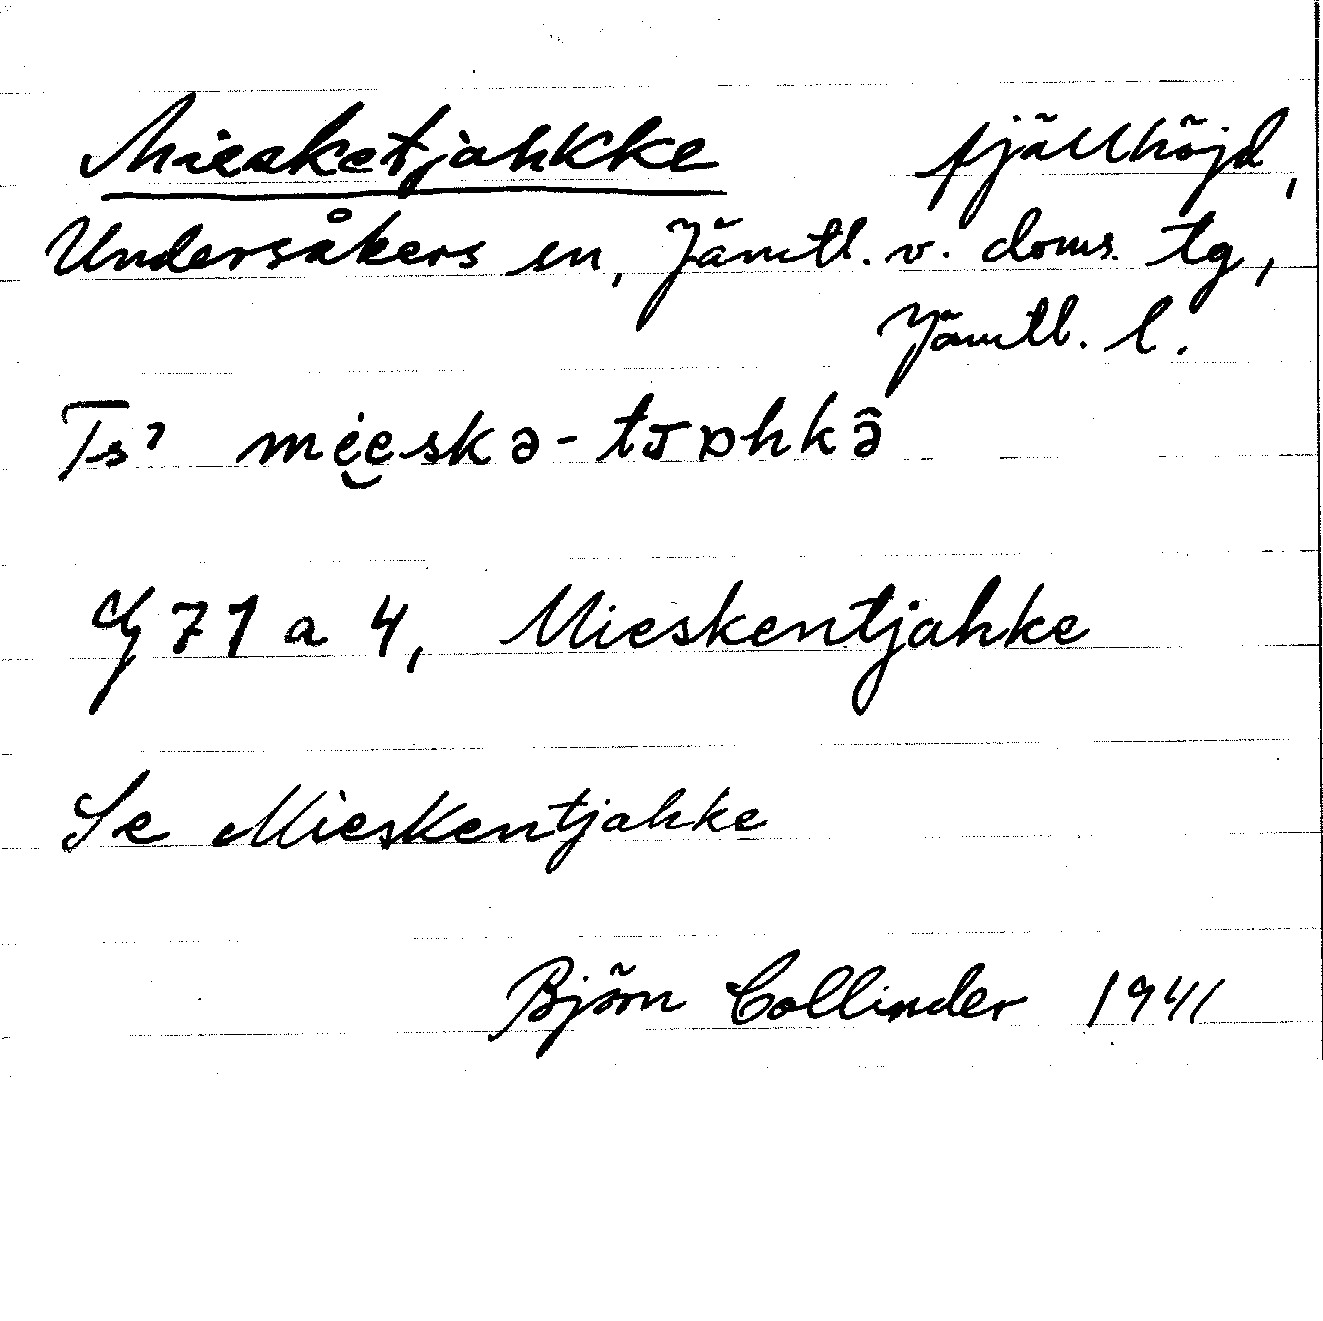 Miesketjahkke fjällhöjd,
Undersåkers sn, Jämtl. v. doms. tg,
Jämtl. l.
Ts?
G 71 a 4, Mieskentjahke
Se Mieskentjahke
Björn Collinder 1941